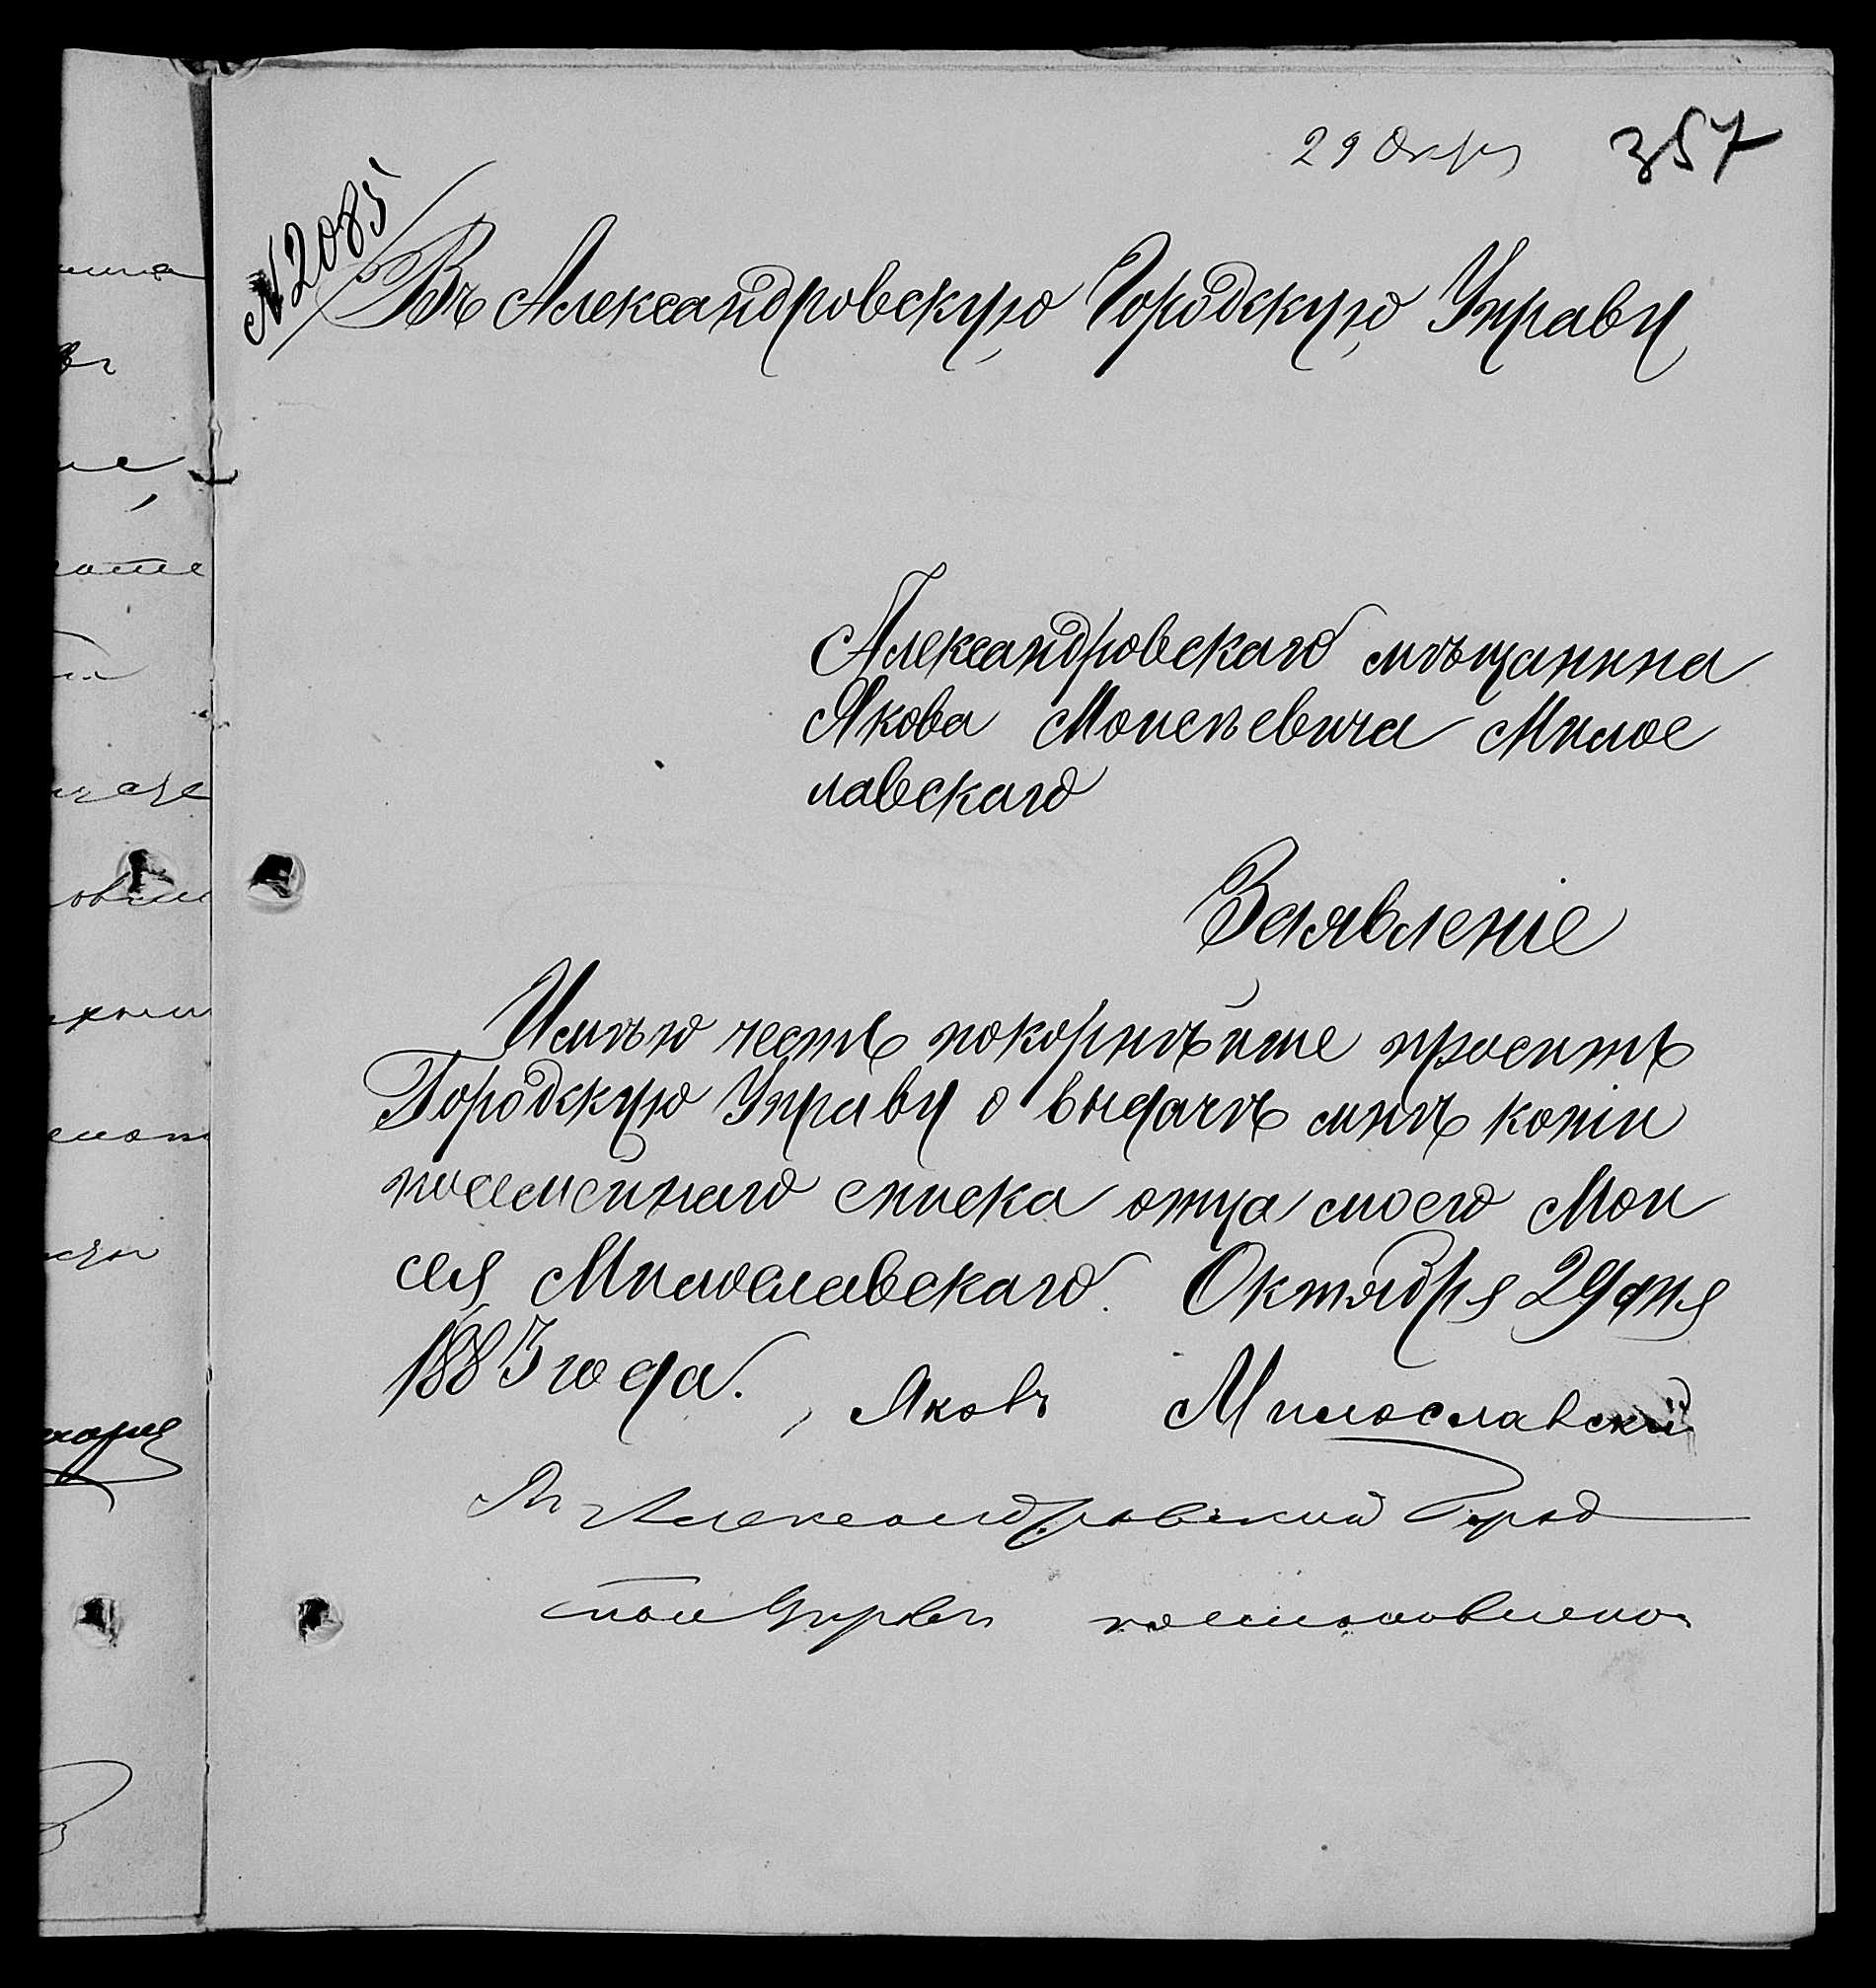 29 Окт 357
№ 2085
Въ Александровскую Городскую Управу
Александровскаго мѣщанина
Якова Моисѣевича Милос
лавскаго
Заявленіе
Имѣю честь покорнѣйше просить
Городскую Управу о выдачѣ мнѣ копіи
посемейнаго списка отца моего Мои
сея Милославскаго. Октября 29 дня
1883 года.
Яковъ Милославскій
Въ Александровской Город
ской Управѣ постановлено